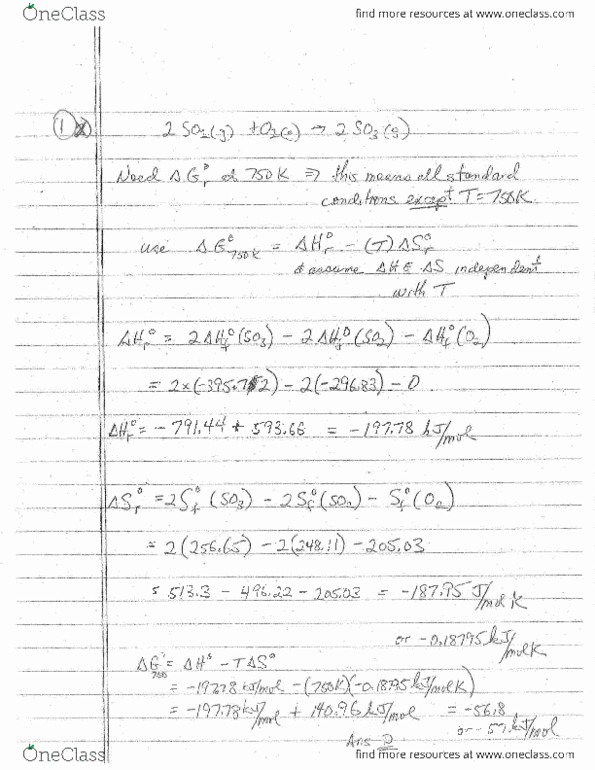 OneClass
find more resources at www.oneclass.com
1 2 SO2(g) + O2(g) → 2 SO3(g)
Need ΔG°r at 750K ⇒ this means all standard
conditions except T = 750K.
use ΔG°750K = ΔH°r − (T) ΔS°r
& assume ΔH & ΔS independent
with T
ΔH°r = 2ΔH°f(SO3) − 2ΔH°f(SO2) − ΔH°f(O2)
= 2×(-395.72) − 2(-296.83) − 0
ΔH°r = − 791.44 + 593.66 = −197.78 kJ/mol
ΔS°r = 2S°f(SO3) − 2S°f(SO2) − S°f(O2)
= 2(256.65) − 2(248.11) − 205.03
= 513.3 − 496.22 − 205.03 = −187.95 J/mol K
or −0.18795 kJ/molK
ΔG°750 = ΔH° − TΔS°
= −197.78 kJ/mol − (750K)(−0.18795 kJ/molK)
= −197.78 kJ/mol + 140.96 kJ/mol = −56.8
or −57 kJ/mol
Ans D
OneClass
find more resources at www.oneclass.com